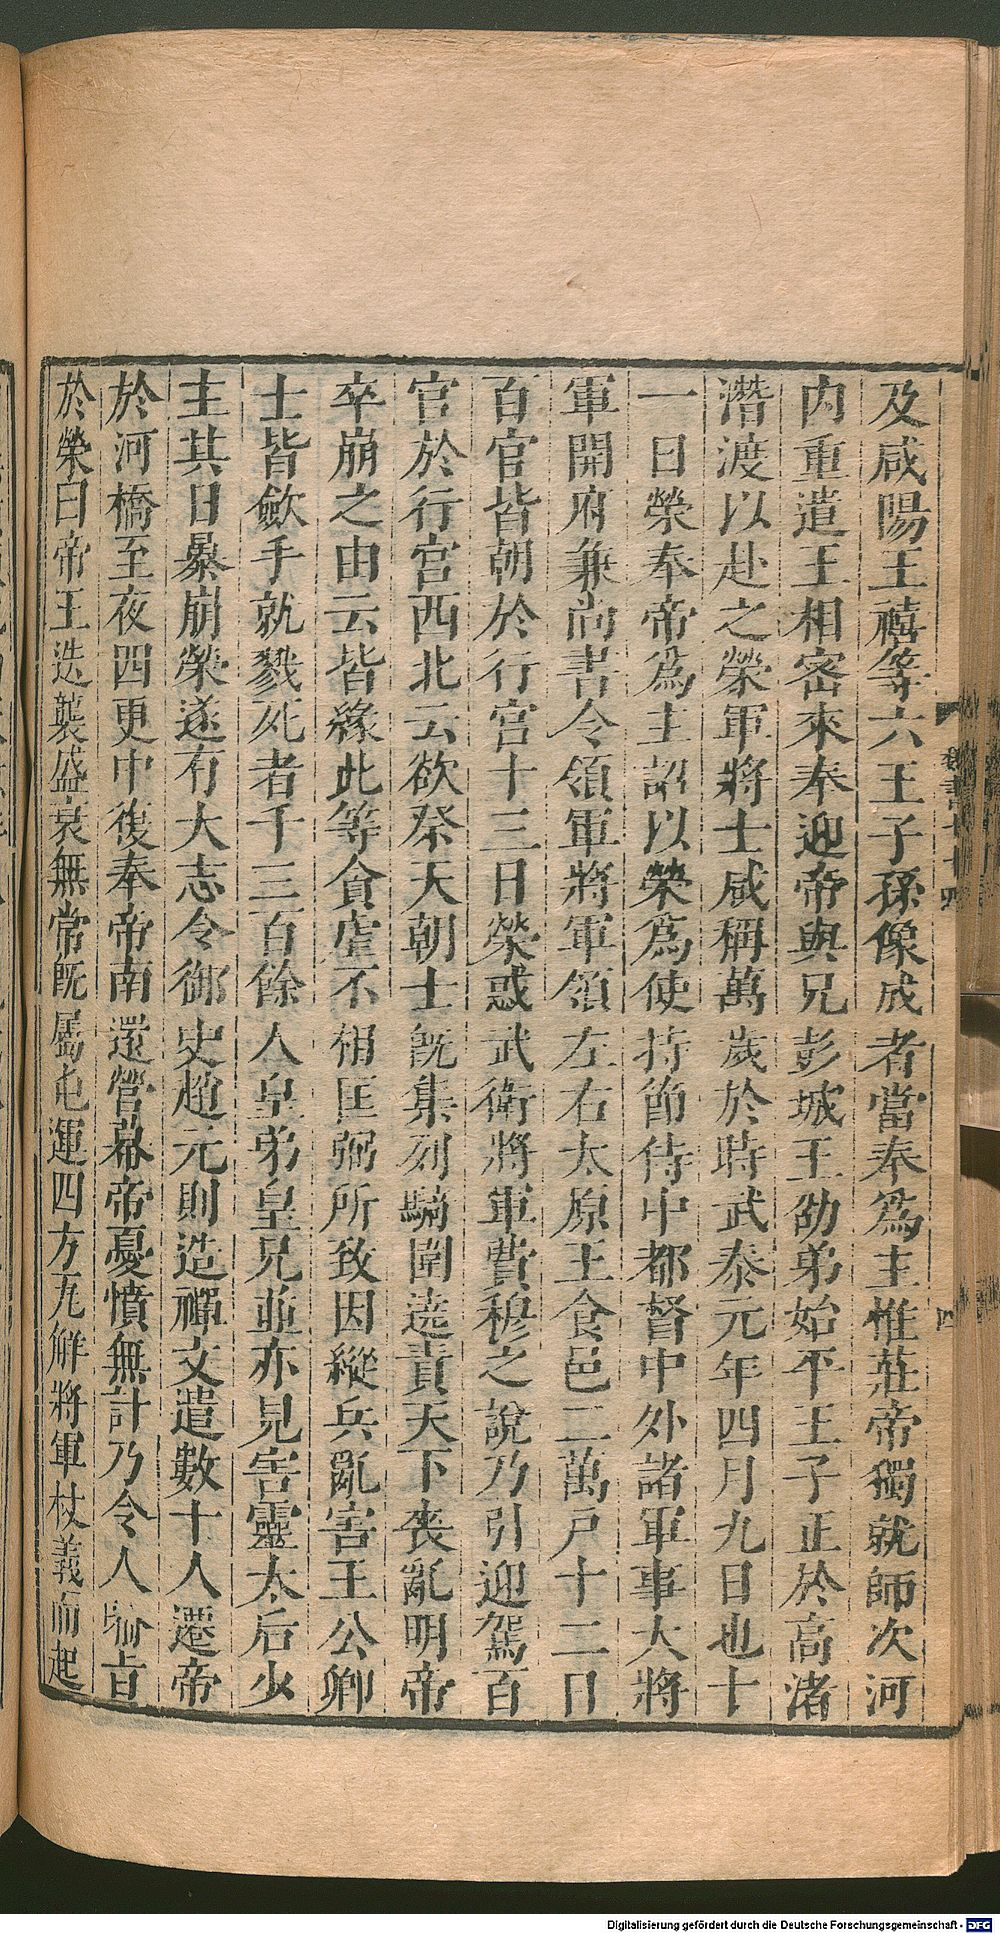 及咸陽王禧等六王子孫像成者當奉爲主惟莊帝獨就師次河
內重遣王相密來奉迎帝與兄彭城王劭弟始平王子正於高渚
潛渡以赴之榮軍將士咸稱萬歲於時武泰元年四月九日也十
一日榮奉帝爲主詔以榮爲使持節侍中都督中外諸軍事大將
軍開府兼尚書令領軍將軍領左右太原王食邑二萬戶十二日
百官皆朝於行宮十三日榮惑武衛將軍費穆之說乃引迎駕百
官於行宮西北云欲祭天朝士既集列騎圍遶責天下喪亂明帝
卒崩之由云皆緣此等貪虐不相匡弼所致因縱兵亂害王公卿
士皆斂手就戮死者千三百餘人皇弟皇兄並亦見害靈太后少
主其日暴崩榮遂有大志令御史趙元則造禪文遣數十人遷帝
於河橋至夜四更中復奉帝南還營幕帝憂憤無計乃令人喻旨
於榮曰帝王迭襲盛衰無常既屬屯運四方瓦解將軍杖義而起
魏書七十四
四
Digitalisierung gefördert durch die Deutsche Forschungsgemeinschaft - DFG